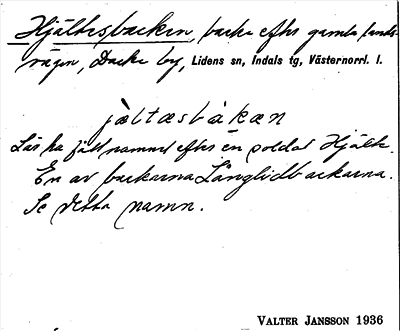 Hjältesbacken, backe efter gamla lands-
vägen, Dacke by, Lidens sn, Indals tg, Västernorrl. l.
jæltæsbàkæn
Lär ha fått namnet efter en soldat Hjält.
En av backarna Långlidbackarna.
Se detta namn.
VALTER JANSSON 1936